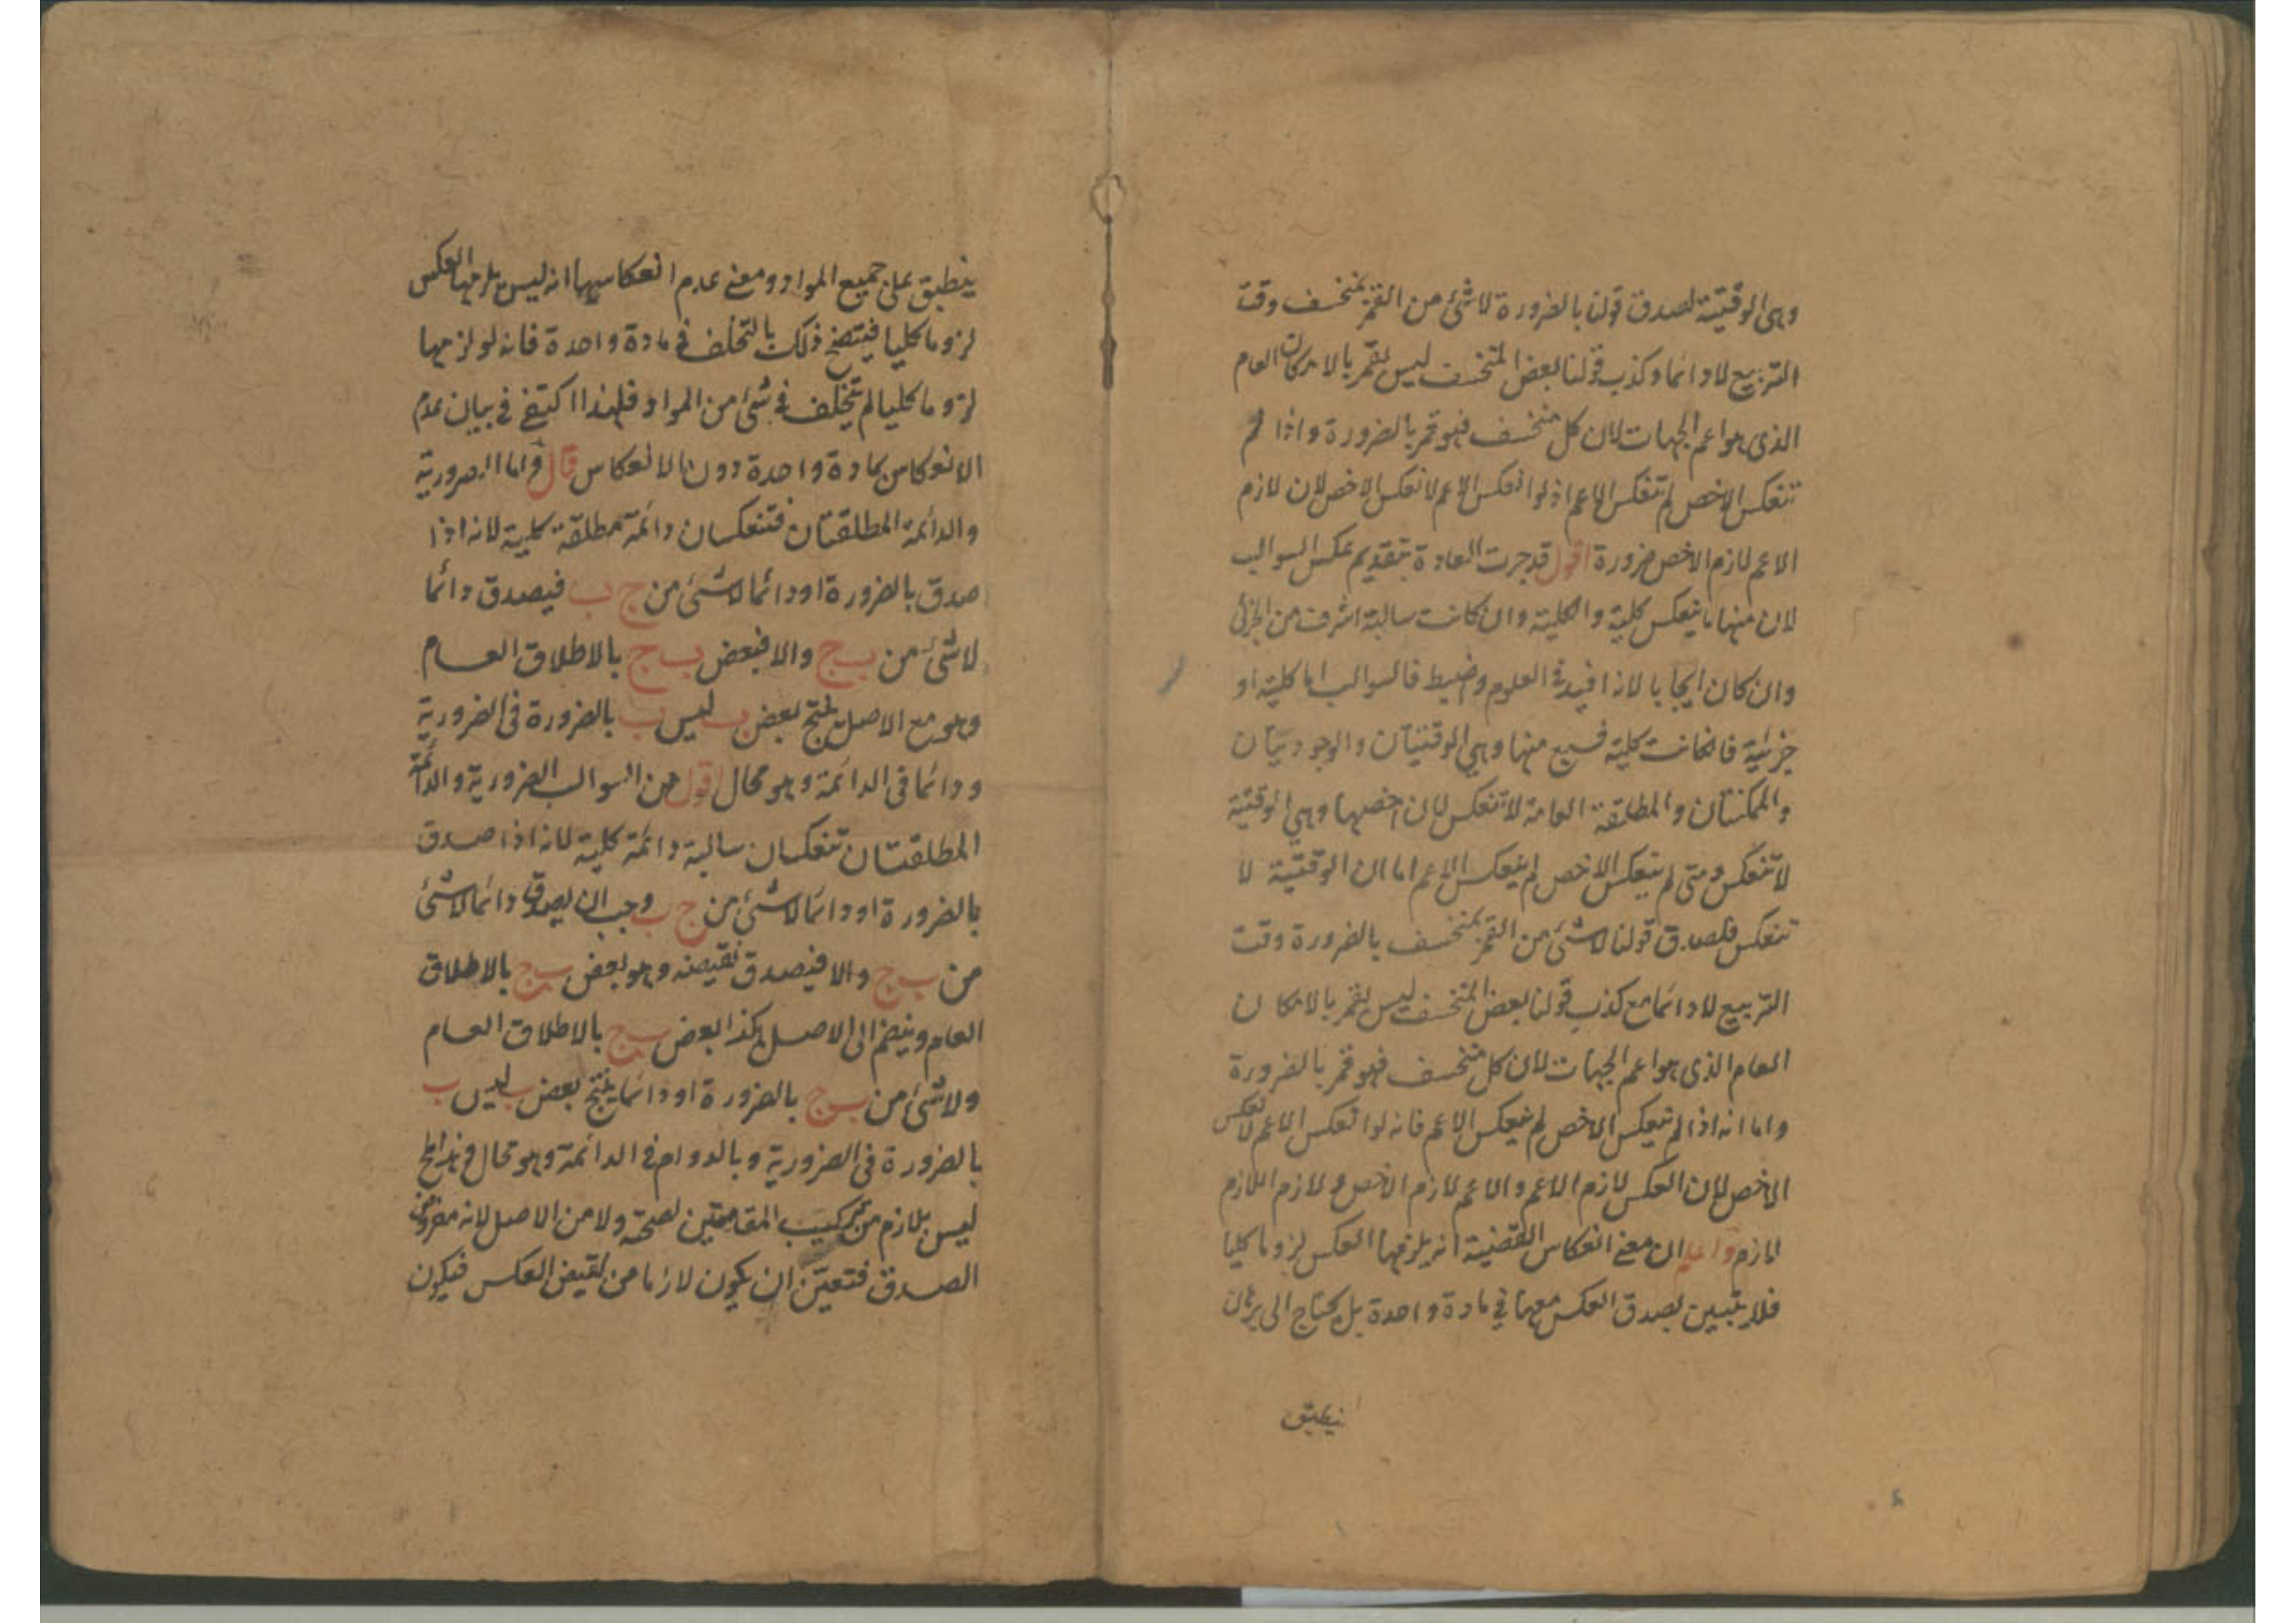 وهى الوقتية لصدق قولنا بالضرورة لا شئ من القمر بمنخسف وقت
التربيع لا دائما وكذب قولنا بعض المنخسف ليس بقمر بالامكان العام
الذى هو اعم الجهات لان كل منخسف فهو قمر بالضرورة واذا لم
تنعكس الاخص لم تنعكس الاعم اذ لو انعكس الاعم لانعكس الاخص لان لازم
الاعم لازم الاخص ضرورة اقول قد جرت العادة بتقديم عكس السوالب
لان منها ما ينعكس كلية والكلية وان كانت سالبة اشرف من الجزئى
وان كان ايجابا لانه افيد فى العلوم واضبط فالسوالب اما كلية او
جزئية فان كانت كلية فسبع منها وهى الوقتيتان والوجوديتان
والممكنتان والمطلقة العامة لا تنعكس لان اخصها وهى الوقتية
لا تنعكس ومتى لم ينعكس الاخص لم ينعكس الاعم اما ان الوقتية لا
تنعكس فلصدق قولنا لا شئ من القمر بمنخسف بالضرورة وقت
التربيع لا دائما مع كذب قولنا بعض المنخسف ليس بقمر بالامكان
العام الذى هو اعم الجهات لان كل منخسف فهو قمر بالضرورة
واما انه اذا لم ينعكس الاخص لم ينعكس الاعم فانه لو انعكس الاعم لانعكس
الاخص لان العكس لازم الاعم والاعم لازم الاخص ولازم اللازم
لازم واعلم ان معنى انعكاس القضية انه يلزمها العكس لزوما كليا
فلا يتبين بصدق العكس معها فى مادة واحدة بل يحتاج الى برهان
ينطبق
ينطبق على جميع المواد ومعنى عدم انعكاسها انه ليس يلزمها العكس
لزوما كليا فيتضح ذلك بالتخلف فى مادة واحدة فانه لو لزمها
لزوما كليا لم يتخلف فى شئ من المواد فلهذا اكتفى فى بيان عدم
الانعكاس بمادة واحدة دون الانعكاس قال واما الضرورية
والدائمة المطلقتان فتنعكسان دائمة مطلقة كلية لانه اذا
صدق بالضرورة او دائما لا شئ من ج ب فيصدق دائما
لا شئ من ب ج والا فبعض ب ج بالاطلاق العام
وهو مع الاصل ينتج بعض ب ليس ب بالضرورة فى الضرورية
ودائما فى الدائمة وهو محال اقول من السوالب الضرورية والدائمة
المطلقتان تنعكسان سالبة دائمة كلية لانه اذا صدق
بالضرورة او دائما لا شئ من ج ب وجب ان يصدق دائما لا شئ
من ب ج والا فيصدق نقيضه وهو بعض ب ج بالاطلاق
العام وينضم الى الاصل هكذا بعض ب ج بالاطلاق العام
ولا شئ من ب ج بالضرورة او دائما ينتج بعض ب ليس ب
بالضرورة فى الضرورية وبالدوام فى الدائمة وهو محال وهذا المح
ليس بلازم من تركيب المقدمتين لصحته ولا من الاصل لانه مفروض
الصدق فتعين ان يكون لازما من نقيض العكس فيكون